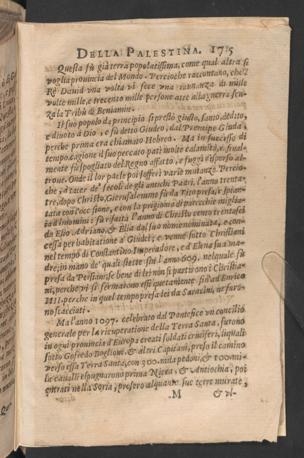 DELLA PALESTINA. 175
Questa fù già terra popolatissima, come qual altra si
voglia prouincia del Mondo. Percioche raccontano, che'l
Rè Dauid vna volta vi fece vna di mille
volte mille, e trecento mille persone atte alla guerra, sen-
za le Tribù di Beniamin.
Il suo popolo da principio si prestò giusto, santo, dedito,
e diuoto à Dio, e fù detto Giudeo, dal Prencipe Giuda,
perche prima era chiamato Hebreo. Ma in successo di
tempo cagione il suo peccato patì molte calamità, e final-
mente fù spogliato del Regno affatto, e fuggì disperso al-
troue. Onde il lor paese poi sofferì varie mutanze. Percio-
che, à tacer de' secoli de gli antichi Padri, l'anno trenta-
tre, dopò Christo, Gierusalemme fù da Tito presa, e spian-
tata con l'occisione, e con la prigionia di parecchie miglia-
ia d'huomini: fù rifatta l'anno di Christo cento trentasei
da Elio Adriano, & Elia dal suo nome nominata, e con-
cessa per habitatione a Giudei; e venne sotto Christiani
nel tempo di Constantino Imperadore, ed Elena sua ma-
dre, in mano de' quali stette sin l'anno 609. nelquale fù
presa da Persiani; se bene di lei non si partirono i Christia-
ni, perche vi si fermarono essi quetamente fin ad Enrico
IIII. perche in quel tempo presa lei da Saraceni, ne furo-
no scacciati.
Ma l'anno 1097. celebrato dal Pontefice vn concilio
generale per la ricuperatione della Terra Santa, furono
in ogni prouincia d'Europa creati soldati cruciferi, iquali
sotto Gofredo Boglioni, & altri Capitani, preso il camino
verso essa Terra Santa, con 300. mila pedoni, & 100. mi-
la caualli espugnarono prima Nicea, & Antiochia, poi
entrati nella Soria, presero alquante sue terre murate,
M & vl-